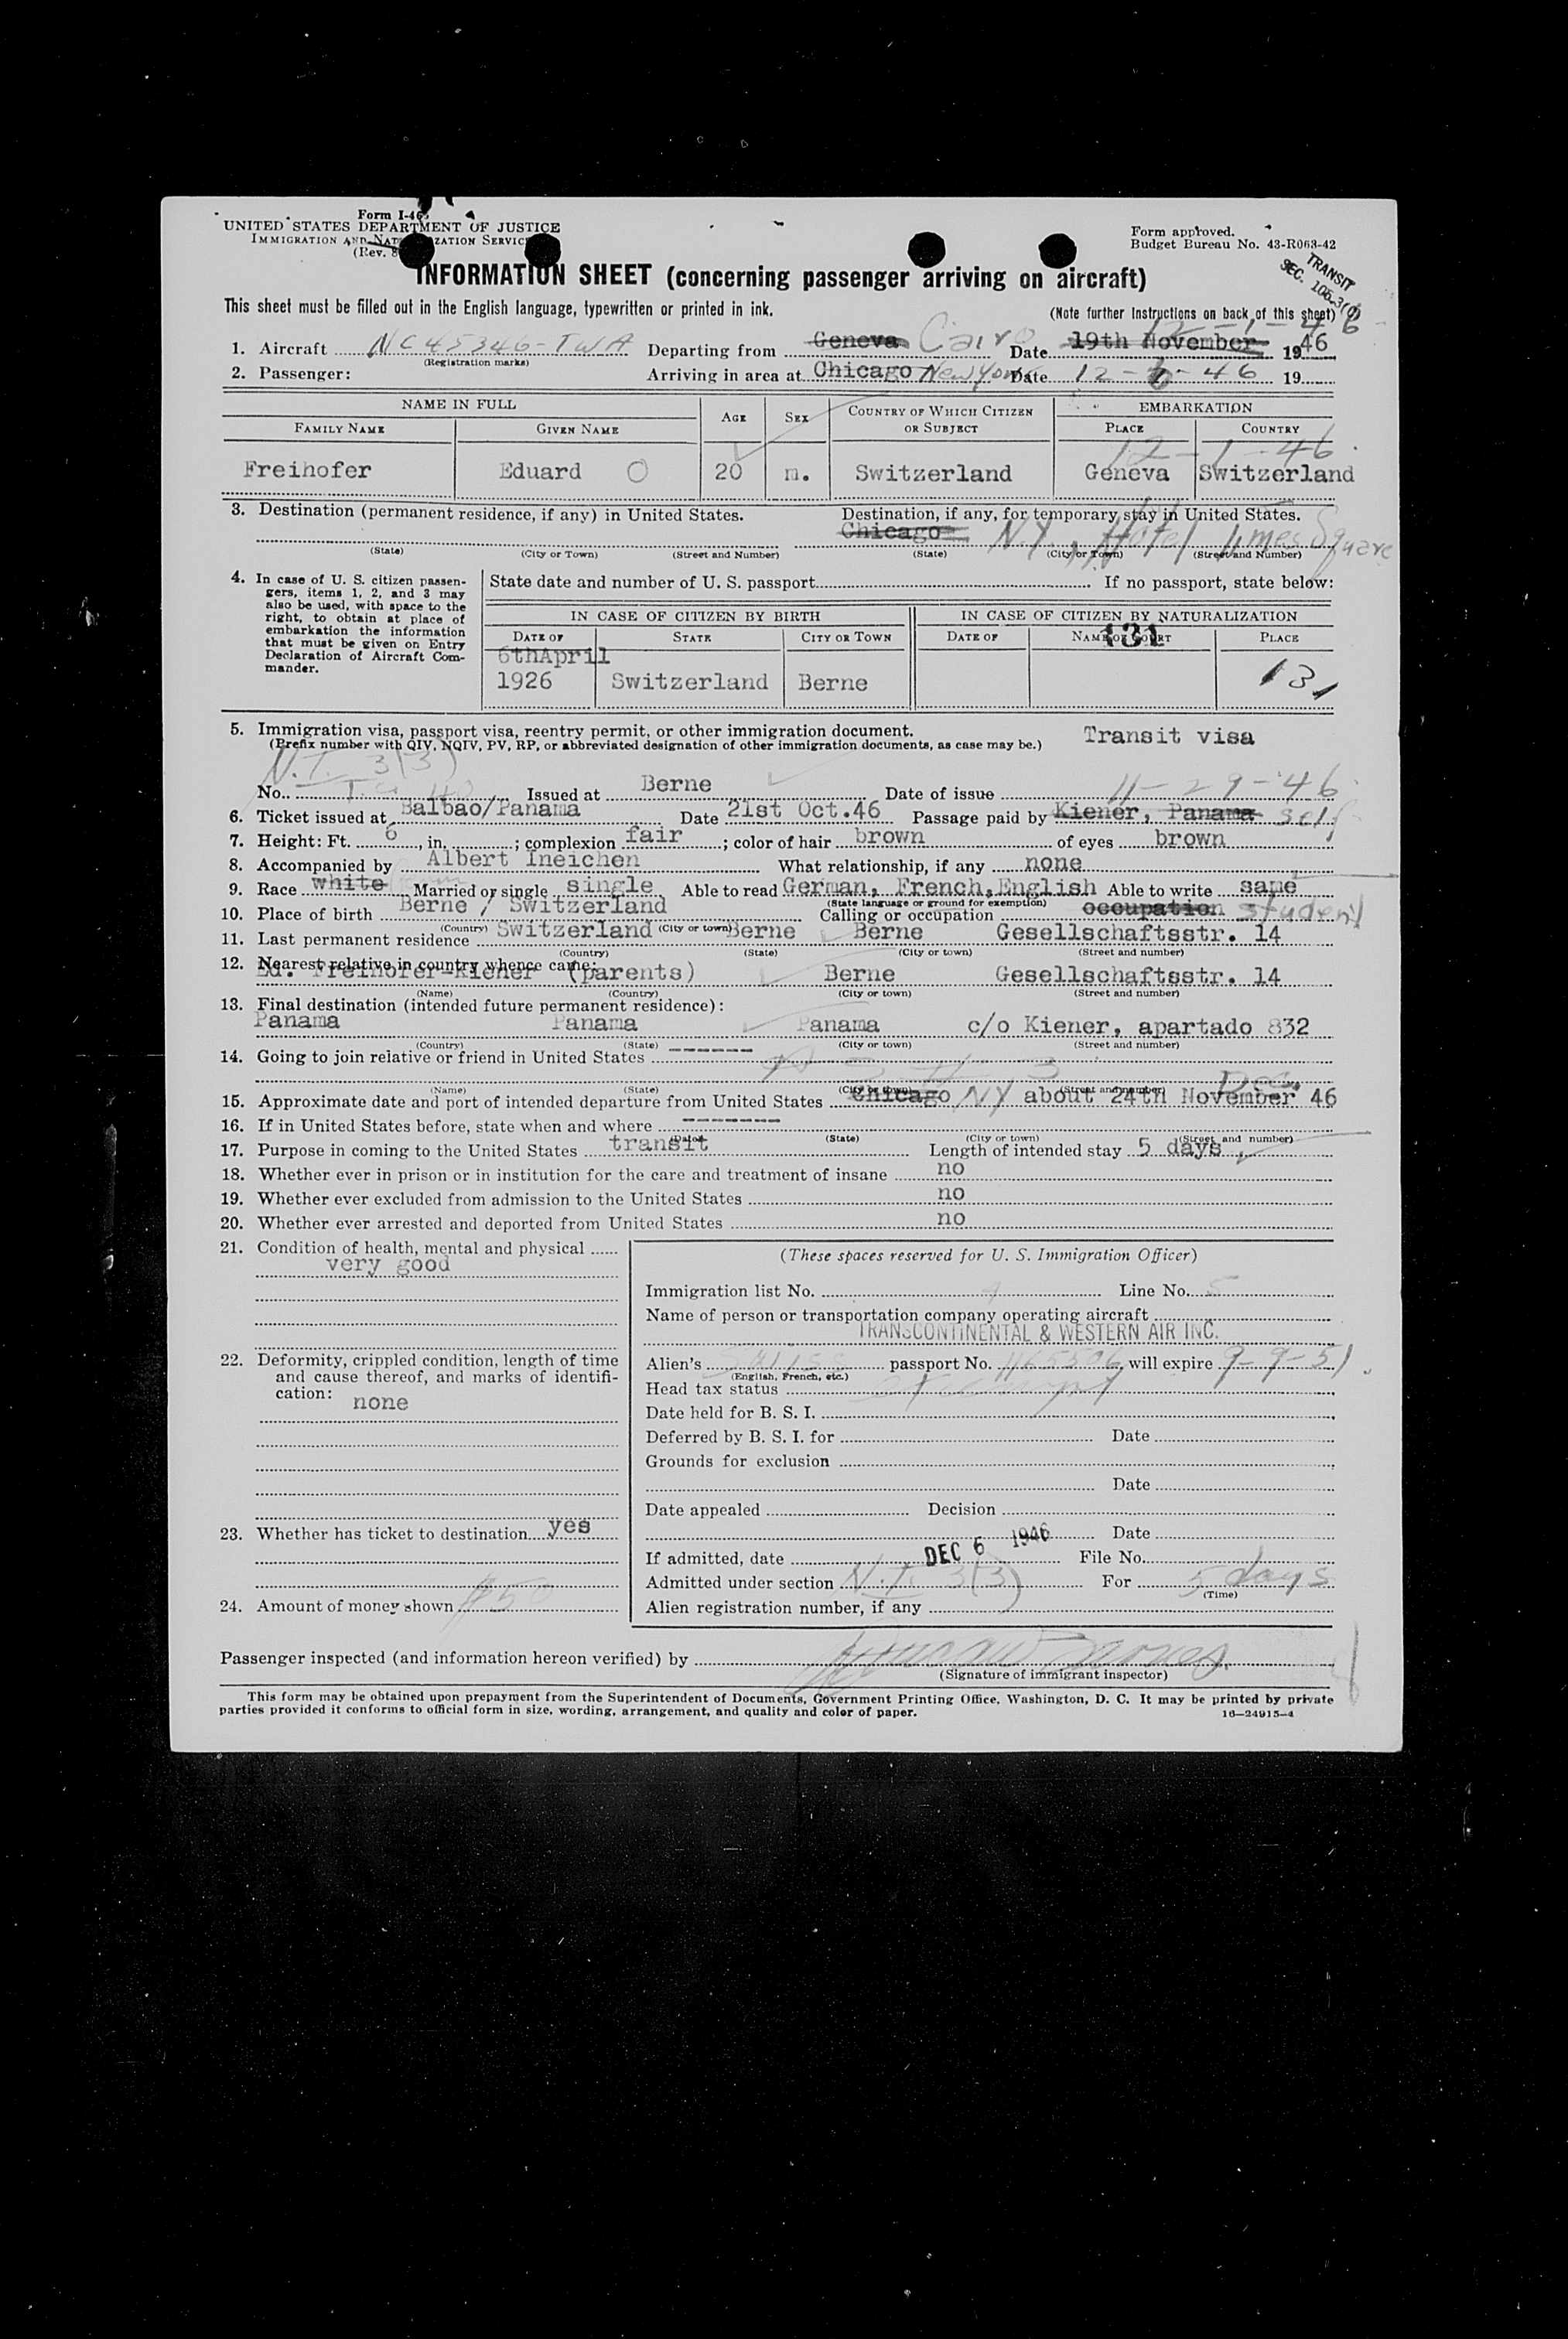 Form I-46
UNITED STATES DEPARTMENT OF JUSTICE
IMMIGRATION AND NATURALIZATION SERVICE
(Rev. 8
Form approved.
Budget Bureau No. 43-R063-42
INFORMATION SHEET (concerning passenger arriving on aircraft)
TRANSIT
SEC. 105.3(
This sheet must be filled out in the English language, typewritten or printed in ink.
(Note further Instructions on back of this sheet)
12-1-46
1. Aircraft NC45346-TWA Departing from Geneva Cairo Date 19th November 1946
(Registration marks)
2. Passenger: Arriving in area at Chicago New York Date 12-6-46 19
NAME IN FULL AGE SEX COUNTRY OF WHICH CITIZEN OR SUBJECT EMBARKATION
FAMILY NAME GIVEN NAME PLACE COUNTRY
12-1-46
Freihofer Eduard O 20 m. Switzerland Geneva Switzerland
3. Destination (permanent residence, if any) in United States. Destination, if any, for temporary stay in United States.
Chicago N.Y., Hotel Times Square
(State) (City or Town) (Street and Number) (State) (City or Town) (Street and Number)
4. In case of U. S. citizen passengers, items 1, 2, and 3 may also be used, with space to the right, to obtain at place of embarkation the information that must be given on Entry Declaration of Aircraft Commander.
State date and number of U. S. passport If no passport, state below:
IN CASE OF CITIZEN BY BIRTH IN CASE OF CITIZEN BY NATURALIZATION
DATE OF STATE CITY OR TOWN DATE OF NAME OF COURT PLACE
131
6thApril
1926 Switzerland Berne 131
5. Immigration visa, passport visa, reentry permit, or other immigration document. Transit visa
(Prefix number with QIV, NQIV, PV, RP, or abbreviated designation of other immigration documents, as case may be.)
N.T. 3(3)
No. Issued at Berne Date of issue 11-29-46
6. Ticket issued at Balbao/Panama Date 21st Oct.46 Passage paid by Kiener, Panama self
7. Height: Ft. 6, in. ; complexion fair ; color of hair brown of eyes brown
8. Accompanied by Albert Ineichen What relationship, if any none
9. Race white Married or single single Able to read German, French, English Able to write same
(State language or ground for exemption)
10. Place of birth Berne / Switzerland Calling or occupation occupation student
(Country) (City or town)
11. Last permanent residence Switzerland Berne Berne Gesellschaftsstr. 14
(Country) (State) (City or town) (Street and number)
12. Nearest relative in country whence came:
Ed. Freihofer-Kiener (parents) Berne Gesellschaftsstr. 14
(Name) (Country) (City or town) (Street and number)
13. Final destination (intended future permanent residence):
Panama Panama Panama c/o Kiener, apartado 832
(Country) (State) (City or town) (Street and number)
14. Going to join relative or friend in United States -------
(Name) (State) (City or town) (Street and number)
Dec.
15. Approximate date and port of intended departure from United States Chicago NY about 24th November 46
16. If in United States before, state when and where --------
(Date) (State) (City or town) (Street and number)
17. Purpose in coming to the United States transit Length of intended stay 5 days
18. Whether ever in prison or in institution for the care and treatment of insane no
19. Whether ever excluded from admission to the United States no
20. Whether ever arrested and deported from United States no
21. Condition of health, mental and physical
very good
22. Deformity, crippled condition, length of time and cause thereof, and marks of identification:
none
23. Whether has ticket to destination yes
24. Amount of money shown $50
(These spaces reserved for U. S. Immigration Officer)
Immigration list No. Line No. 5
Name of person or transportation company operating aircraft
TRANSCONTINENTAL & WESTERN AIR INC.
Alien's Swiss passport No. 465506, will expire 9-9-51
(English, French, etc.)
Head tax status exempt
Date held for B. S. I.
Deferred by B. S. I. for Date
Grounds for exclusion
Date
Date appealed Decision
Date
If admitted, date DEC 6 1946 File No.
Admitted under section N.T. 3(3) For 5 days
(Time)
Alien registration number, if any
Passenger inspected (and information hereon verified) by
(Signature of immigrant inspector)
This form may be obtained upon prepayment from the Superintendent of Documents, Government Printing Office, Washington, D. C. It may be printed by private
parties provided it conforms to official form in size, wording, arrangement, and quality and color of paper. 16—24915-4